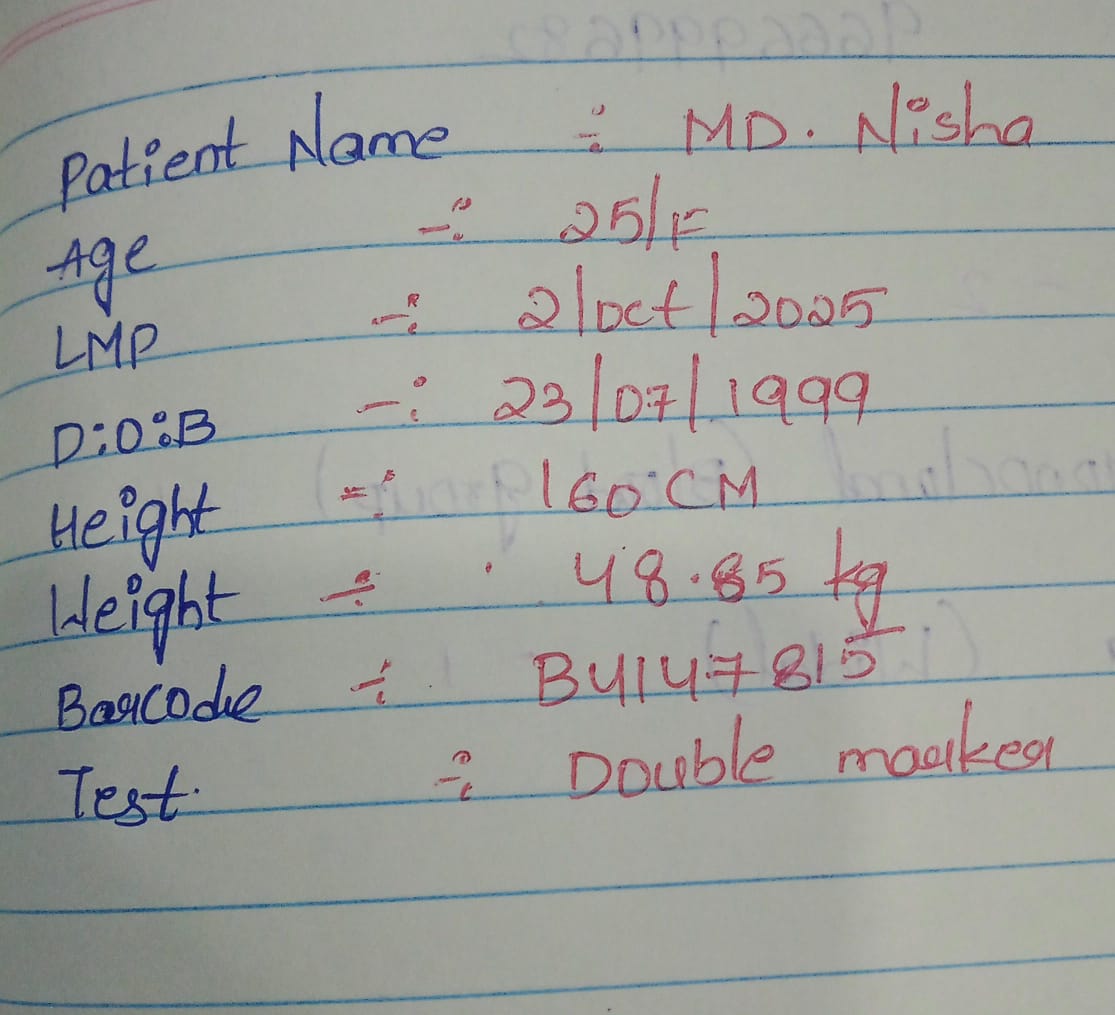 Patient Name ÷ MD. Nisha
Age -: 25/F
LMP -: 2/Oct/2025
D:O:B -: 23/07/1999
Height =: 160 CM
Weight ÷ 48.85 kg
Barcode ÷ B4147815
Test. ÷ Double marker